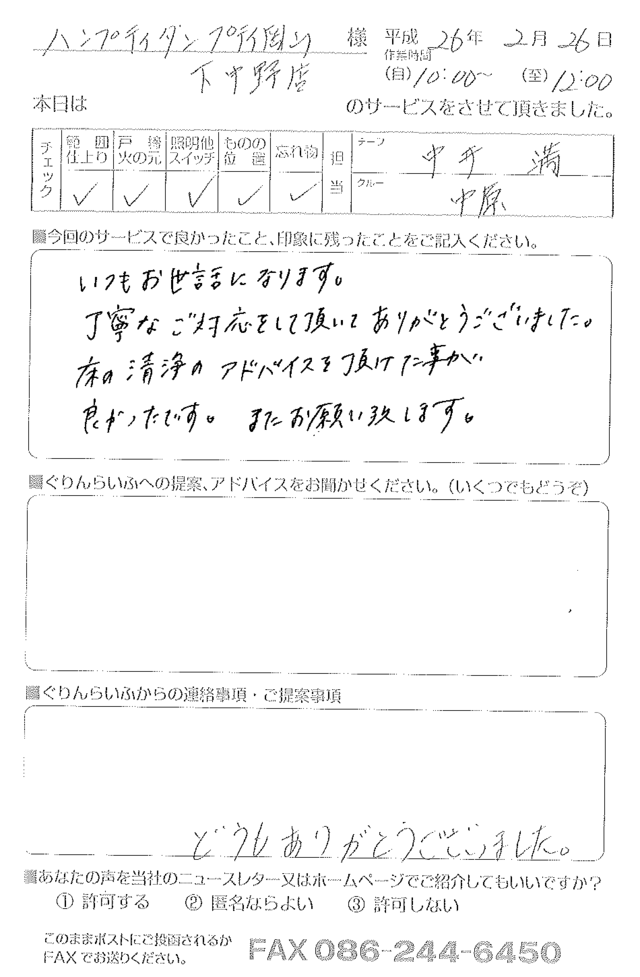 ハンプティダンプティ岡山 様 平成26年 2月26日
下中野店 作業時間 (自)10:00〜 (至)12:00
本日は のサービスをさせて頂きました。
チェック 範囲仕上り 戸締火の元 照明他スイッチ ものの位置 忘れ物 担当 チーフ 中井 満
✓ ✓ ✓ ✓ ✓ クルー 中原
■今回のサービスで良かったこと、印象に残ったことをご記入ください。
いつもお世話になります。
丁寧なご対応をして頂いてありがとうございました。
床の清浄のアドバイスを頂けた事が
良かったです。またお願い致します。
■ぐりんらいふへの提案、アドバイスをお聞かせください。(いくつでもどうぞ)
■ぐりんらいふからの連絡事項・ご提案事項
どうもありがとうございました。
■あなたの声を当社のニュースレター又はホームページでご紹介してもいいですか?
① 許可する ② 匿名ならよい ③ 許可しない
このままポストにご投函されるか
FAXでお送りください。 FAX 086-244-6450